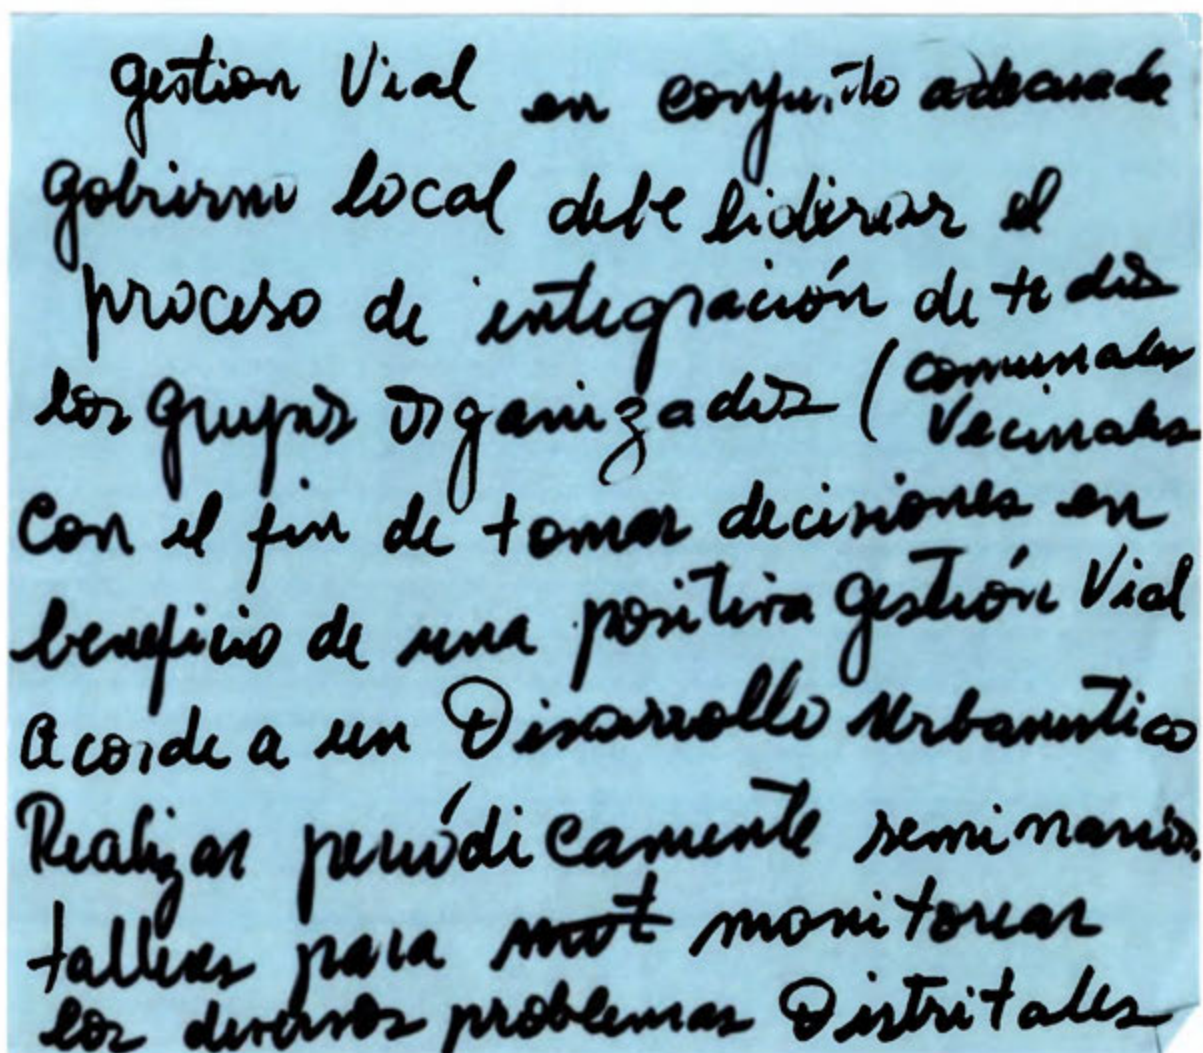 gestion Vial en conjunto adecuada
gobierno local debe liderar el
proceso de integración de todos
los grupos organizados (comunales
Vecinales
Con el fin de tomar decisiones en
beneficio de una positiva gestión Vial
acorde a un Disarrollo Urbanistico
Realizar periódicamente seminarios.
talleres para monitorear
los diversos problemas Distritales